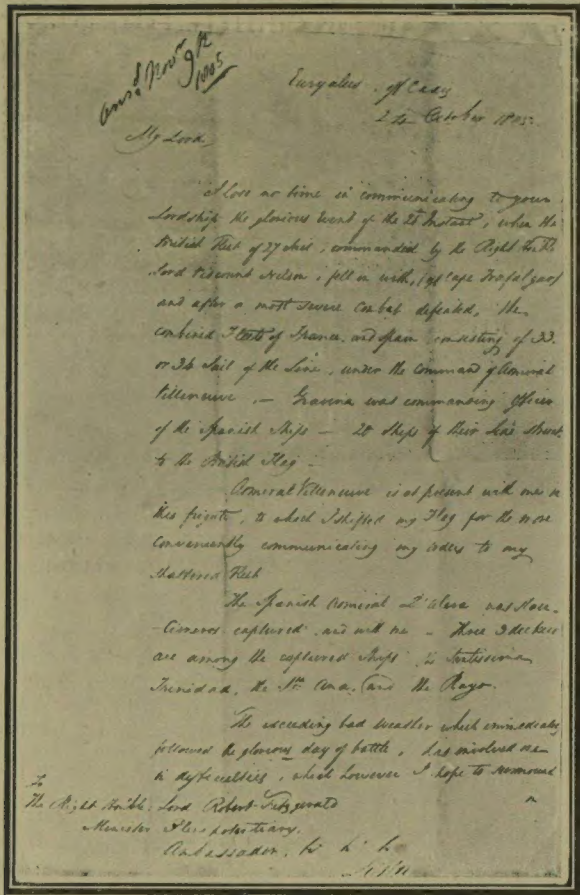 Ansd Novr
9th
1805
Euryalus. off Cadiz
October 1805
My Lord
I lose no time in communicating to your
Lordship the glorious event of the 21 Instant, when the
British Fleet of 27 Sail, commanded by the Right Honble
Lord Viscount Nelson, fell in with, (off Cape Trafalgar)
and after a most severe combat defeated, the
combined Fleets of France, and Spain consisting of 33
or 34 Sail of the Line, under the command of Admiral
Villeneuve, — Gravina was commanding Officer
of the Spanish Ships — 20 Ships of their Line struck
to the British Flag —
Admiral Villeneuve is at present with me in
this frigate, to which I shifted my Flag for the more
conveniently communicating my orders to my
shattered Fleet
The Spanish Admiral D'Alava was
Cisneros captured and with me — Three 3 deckers
are among the captured Ships
Trinidad, the Sta. Ana, and the Rayo.
The exceeding bad weather which immediately
followed the glorious day of battle, has involved me
in difficulties, which however I hope to surmount
To
The Right Honble. Lord Robert Fitzgerald
Minister Plenipotentiary.
Ambassador, &c &c &c